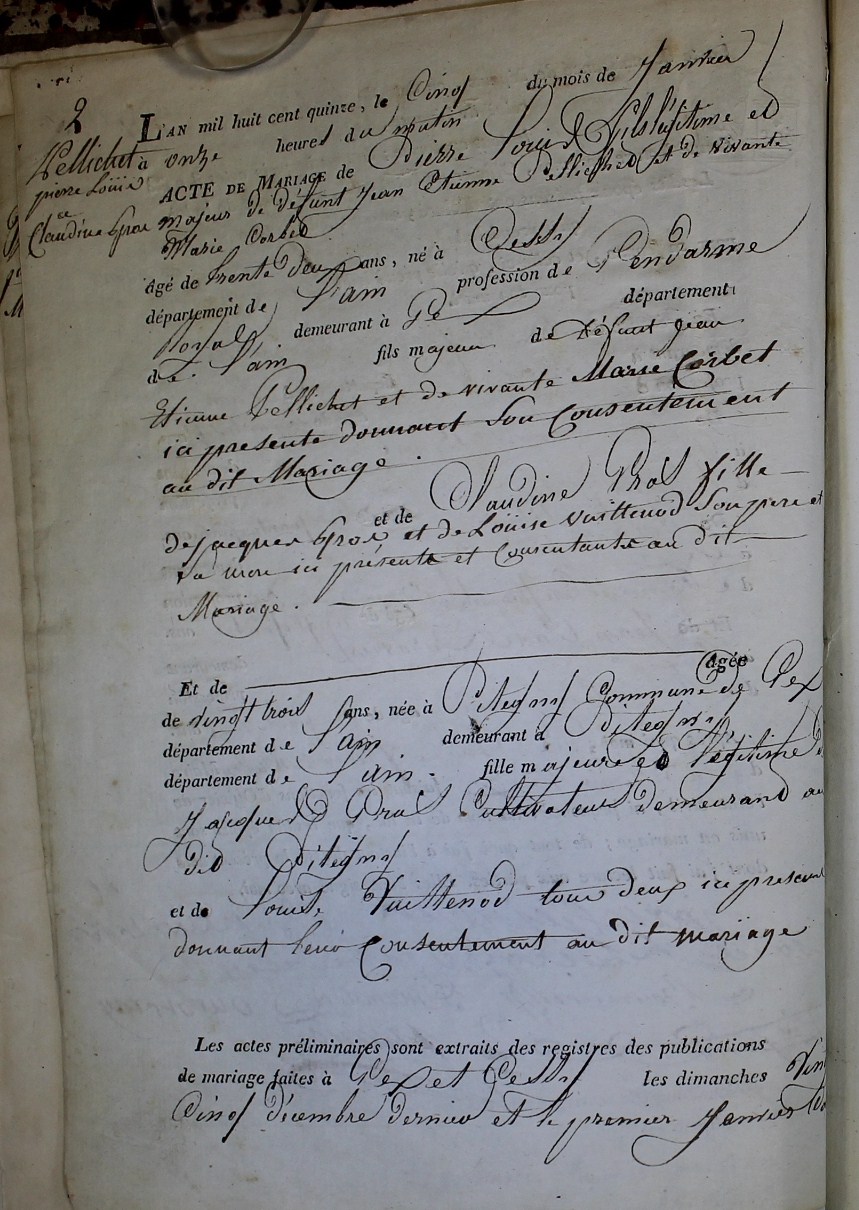 2
Pellichet
pierre Louis
et
Claudine gros
L'AN mil huit cent quinze, le Cinq du mois de Janvier
à onze heures du matin
ACTE DE MARIAGE de Pierre Louis fils légitime et
majeur de défunt Jean Etienne Pellichet et de vivante
Marie Corbet
âgé de trente deux ans, né à Cessy
département de l'ain profession de Gendarme
Royal demeurant à Gex département
de l'ain fils majeur de Défunt Jean
Etienne Pellichet et de vivante Marie Corbet
ici presente donnant Son Consentement
au dit Mariage.
et de Claudine Gros fille
de jacques gros et de Louise Vuillenod Son pere et
sa mere ici présents et Consentants au dit
Mariage.
Et de âgée
de vingt trois ans, née à Pitegny Commune de Gex
département de l'ain demeurant à Pitegny
département de l'ain. fille majeure et légitime
Jacques Gros Cultivateur demeurant au
dit Pitegny
et de Louise Vuillenod tous deux ici present
donnant leur Consentement au dit mariage
Les actes préliminaires sont extraits des registres des publications
de mariage faites à Gex et Cessy les dimanches Vin
Cinq décembre dernier et le premier Janvier